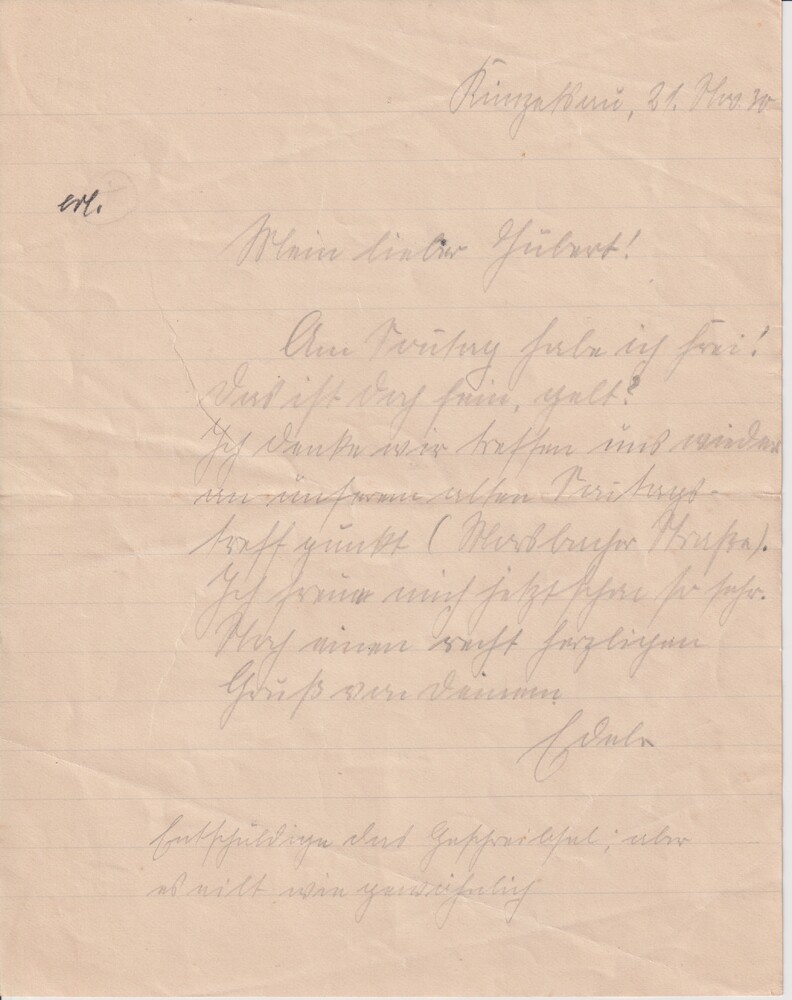 Künzelsau, 21. Nov. 30
erl.
Mein lieber Hubert!
Am Sonntag habe ich frei!
Das ist doch fein, gelt?
Ich denke wir treffen uns wieder
an unserem alten Sontags-
treffpunkt ( Morsbacher Straße).
Ich freue mich jetzt schon so sehr.
Noch einen recht herzlichen
Gruß von Deinem
Entschuldige das Geschreibsel; aber
es eilt wie gewöhnlich